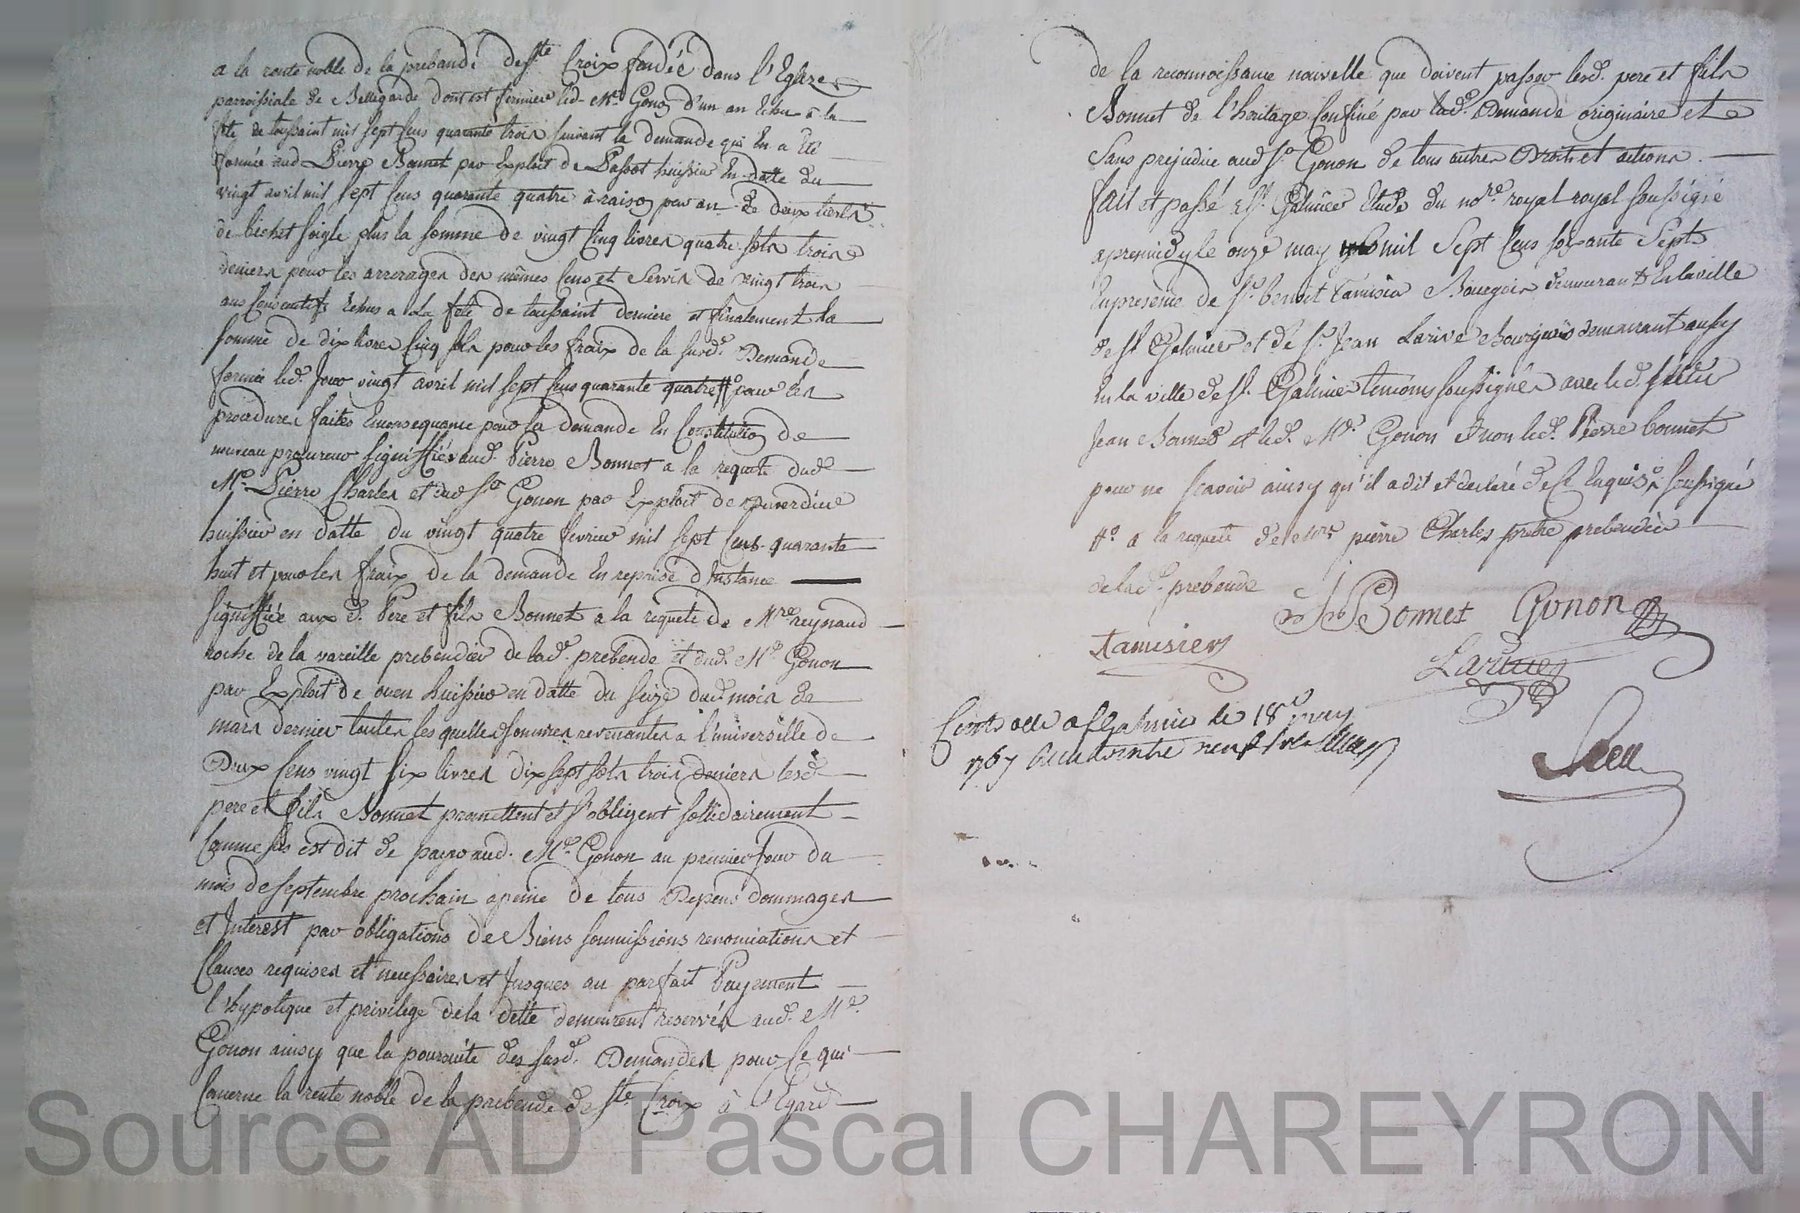 a la rente noble de la prebande de Ste Croix fondée dans l'Eglize
parroissiale de Bellegarde dont est fermier led. Mr. Gonon d'un an echu à la
fête de toussaint mil sept cens quarante trois suivant la demande qui en a été
formée aud. Pierre Bonnet par Exploit de Passot huissier en datte du
vingt avril mil sept cens quarante quatre à raison par an de deux tiers
de bichet seigle plus la somme de vingt cinq livres quatre sols trois
deniers pour les arrerages des mêmes cens et servis de vingt trois
ans consecutifs echus a la fête de toussaint derniere et finalement la
somme de dix livres cinq sols pour les fraix de la susd. Demande
formée led. Jour vingt avril mil sept cens quarante quatre # pour les
procedures faites en consequance pour la demande en Constitution de
nouveau procureur signiffiés aud. Pierre Bonnet a la requete dud.
Mr. Pierre Charles et dud. Sr. Gonon par Exploit de
huissier en datte du vingt quatre fevrier mil sept cens quarante
huit et pour les fraix de la demande en reprise d'Instance
signiffiée aux d. Pere et fils Bonnet a la requete de Mre reynaud
roche de la vareille prebendier de lad. prebende et dud. Mr. Gonon
par Exploit de ouen huissier en datte du seize dud. mois de
mars dernier toutes les quelles sommes revenantes a l'universelle de
Deux cens vingt six livres dix sept sols trois deniers lesd.
pere et fils Bonnet promettent et s'obligent sollidairement
comme sus est dit de payer aud. Mr. Gonon au premier Jour du
mois de septembre prochain a peine de tous Depens dommages
et Interest par obligations de Biens soumissions renonciations et
Clauses requises et necessaires et Jusques au parfait Payement
l'hypotique et privilege de la dette demeurent reservés aud. Mr.
Gonon ainsy que la poursuite des susd. Demandes pour ce qui
Concerne la rente noble de la prebende de Ste Croix à l'Egard
de la reconnoissance nouvelle que doivent passer lesd. pere et fils
Bonnet de l'heritage Confiné par lad. Demande originaire et
Sans prejudice aud. Sr. Gonon de tous autres Droits et actions.
fait et passé a St. Galmier Etude du nore. royal royal soussigné
apres midy le onze may mil Sept Cens soixante Sept
En presence de Sr. benoit tamisier Bourgeois demeurant En la ville
de St Galmier et de Sr. Jean Larive Bourgeois demeurant aussy
En la ville de St. Galmier temoins soussignés avec led.
Jean Bonnet et led. Mr. Gonon et non led. Pierre bonnet
pour ne scavoir ainsy qu'il a dit et declaré de ce Enquis. soussigné
#. a la requete de Mre pierre Charles pretre prebendier
de lad. prebende
Bonnet Gonon
tamisier
Larive
Controllé a St Galmier le 18e may
1767 trente neuf sols
Source AD Pascal CHAREYRON